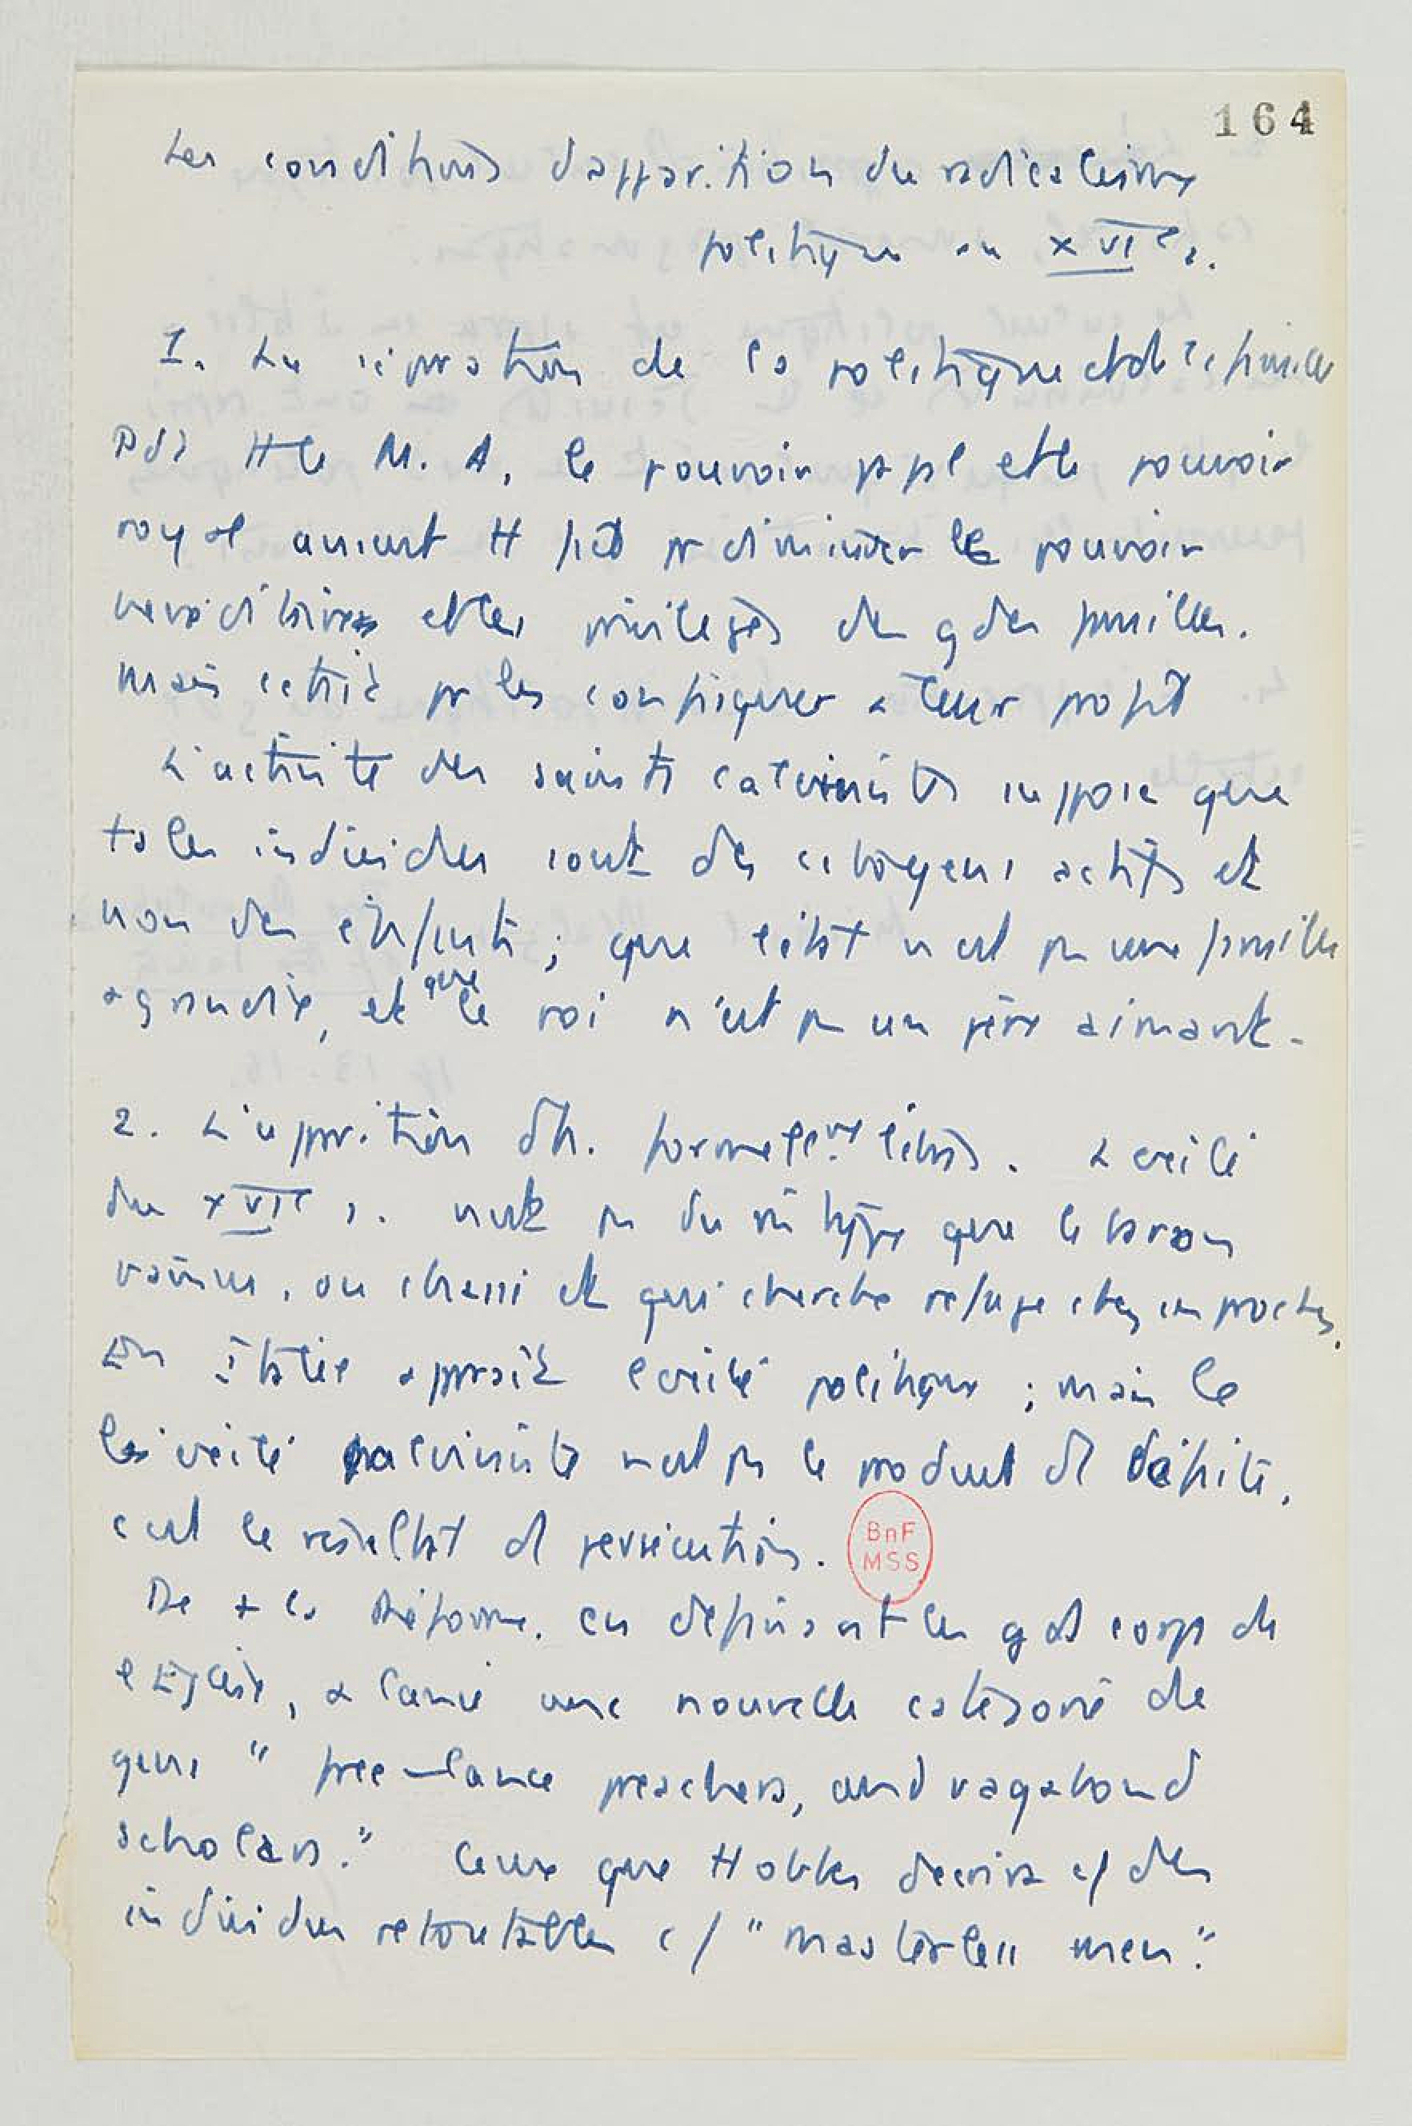 164
Les conditions d'apparition du radicalisme
politique au XVIe s.
1. La séparation de la politique et de la famille
Pdt tt le M. A, le pouvoir ppl et le pouvoir
royal avaient tt fait pr diminuer le pouvoir
et les privilèges des gdes familles.
Mais c'était pr les configurer à leur profit
L'activité des saints calvinistes suppose que
ts les individus sont des citoyens actifs et
non des enfants ; que l'état n'est pas une famille
agrandie, et que le roi n'est pas un père aimant.
2. L'apparition d'h. formellemt libres. L'exilé
du XVIe s. n'est pas du m type que le baron
vaincu, ou chassé et qui cherche refuge chez ses proches.
En Italie apparaît l'exilé politique ; mais le
l'exilé calviniste n'est pas le produit de défaite,
c'est le résultat de persécution.
De + la Réforme, en défaisant le gd corps de
l'Eglise, a laissé une nouvelle catégorie de
gens "free-lance preachers, and vagabond
scholars." Ceux que Hobbes décrira c/ des
individus redoutables c/ "masterless men."
BnF
MSS